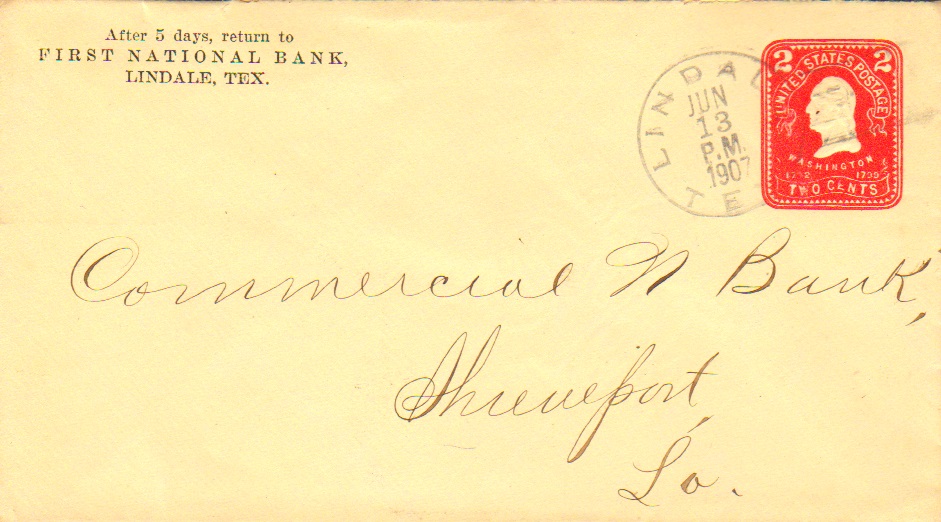 After 5 days, return to
FIRST NATIONAL BANK,
LINDALE, TEX.
LINDAL
JUN
13
P.M.
1907
TE
2 2
UNITED STATES POSTAGE
WASHINGTON
1732 1799
TWO CENTS
Commercial N Bank,
Shreveport,
La.